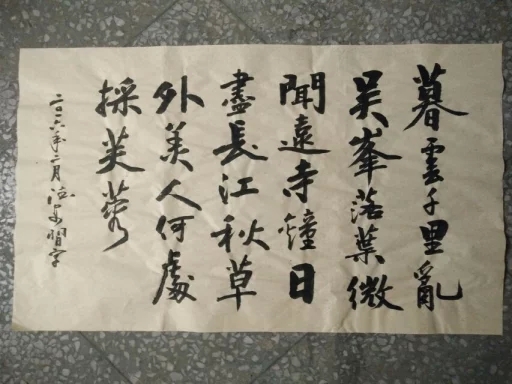 暮雲千里亂
吴峯落葉微
聞遠寺鐘日
盡長江秋草
外美人何處
採芙蓉
二〇一六年二月
習字